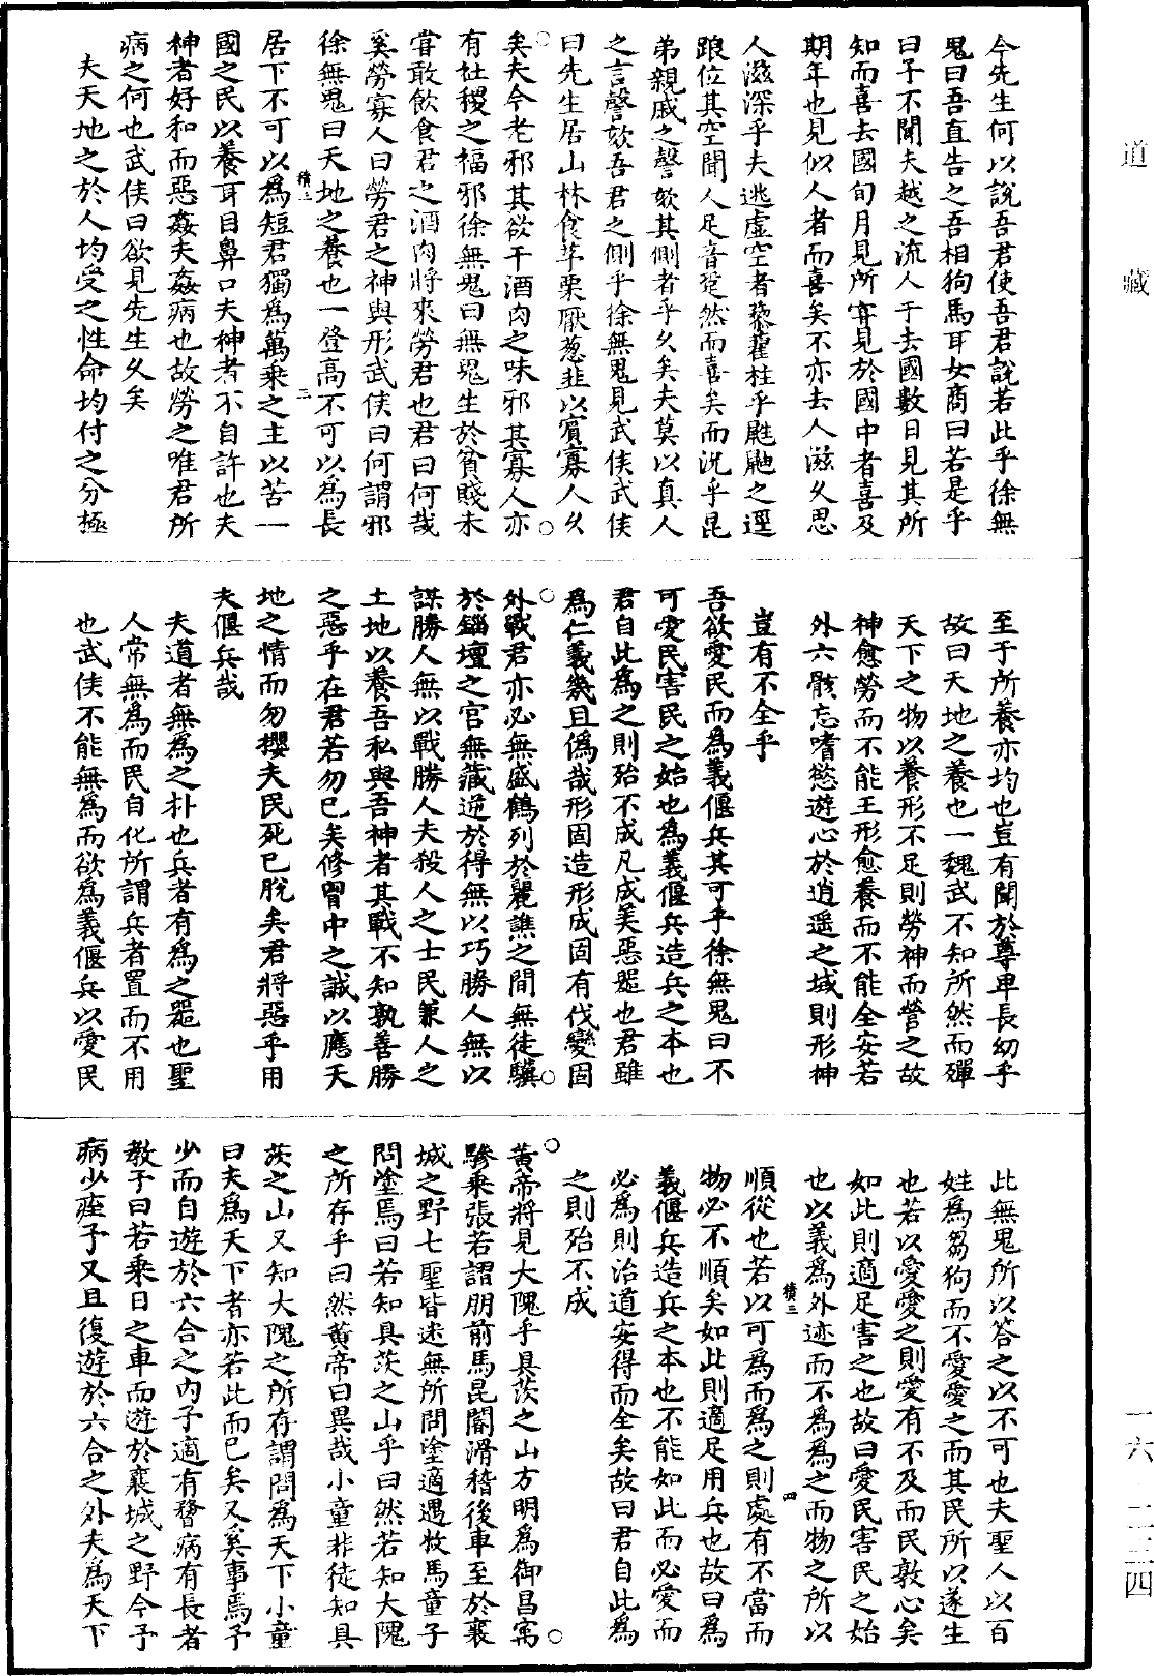 道藏
一六—二三四
今先生何以說吾君使吾君說若此乎徐無
鬼曰吾直告之吾相狗馬耳女商曰若是乎
曰子不聞夫越之流人乎去國數日見其所
知而喜去國旬月見所甞見於國中者喜及
期年也見似人者而喜矣不亦去人滋久思
人滋深乎夫逃虛空者藜藿柱乎鼪鼬之逕
踉位其空聞人足音跫然而喜矣而況乎昆
弟親戚之謦欬其側者乎久矣夫莫以真人
之言謦欬吾君之側乎徐無鬼見武侯武侯
曰先生居山林食芧栗厭葱韭以賓寡人久
矣夫今老邪其欲干酒肉之味邪其寡人亦
有社稷之福邪徐無鬼曰無鬼生於貧賤未
甞敢飲食君之酒肉將來勞君也君曰何哉
奚勞寡人曰勞君之神與形武侯曰何謂邪
徐無鬼曰天地之養也一登高不可以為長
積三
二
居下不可以為短君獨為萬乘之主以苦一
國之民以養耳目鼻口夫神者不自許也夫
神者好和而惡姦夫姦病也故勞之唯君所
病之何也武侯曰欲見先生久矣
夫天地之於人均受之性命均付之分極
至于所養亦均也豈有聞於尊卑長幼乎
故曰天地之養也一魏武不知所然而殫
天下之物以養形不足則勞神而營之故
神愈勞而不能王形愈養而不能全安若
外六骸忘嗜慾遊心於逍遥之域則形神
豈有不全乎
吾欲愛民而為義偃兵其可乎徐無鬼曰不
可愛民害民之始也為義偃兵造兵之本也
君自此為之則殆不成凡成美惡噐也君雖
為仁義幾且僞哉形固造形成固有伐變固
外戰君亦必無盛鶴列於麗譙之間無徒驥
於錙壇之宫無藏逆於得無以巧勝人無以
謀勝人無以戰勝人夫殺人之士民兼人之
土地以養吾私與吾神者其戰不知孰善勝
之惡乎在君若勿已矣修胷中之誠以應天
地之情而勿攖夫民死已脫矣君將惡乎用
夫偃兵哉
夫道者無為之朴也兵者有為之噐也聖
人常無為而民自化所謂兵者置而不用
也武侯不能無為而欲為義偃兵以愛民
此無鬼所以答之以不可也夫聖人以百
姓為芻狗而不愛愛之而其民所以遂生
也若以愛愛之則愛有不及而民敦心矣
如此則適足害之也故曰愛民害民之始
也以義為外迹而不為為之而物之所以
積三
四
順從也若以可為而為之則處有不當而
物必不順矣如此則適足用兵也故曰為
義偃兵造兵之本也不能如此而必愛而
必為則治道安得而全矣故曰君自此為
之則殆不成
黃帝將見大隗乎具茨之山方明為御昌㝢
驂乘張若謵朋前馬昆閽滑稽後車至於襄
城之野七聖皆迷無所問塗適遇牧馬童子
問塗焉曰若知具茨之山乎曰然若知大隗
之所存乎曰然黃帝曰異哉小童非徒知具
茨之山又知大隗之所存謂問為天下小童
曰夫為天下者亦若此而已矣又奚事焉予
少而自遊於六合之内予適有瞀病有長者
教予曰若乘日之車而遊於襄城之野今予
病少痊予又且復遊於六合之外夫為天下